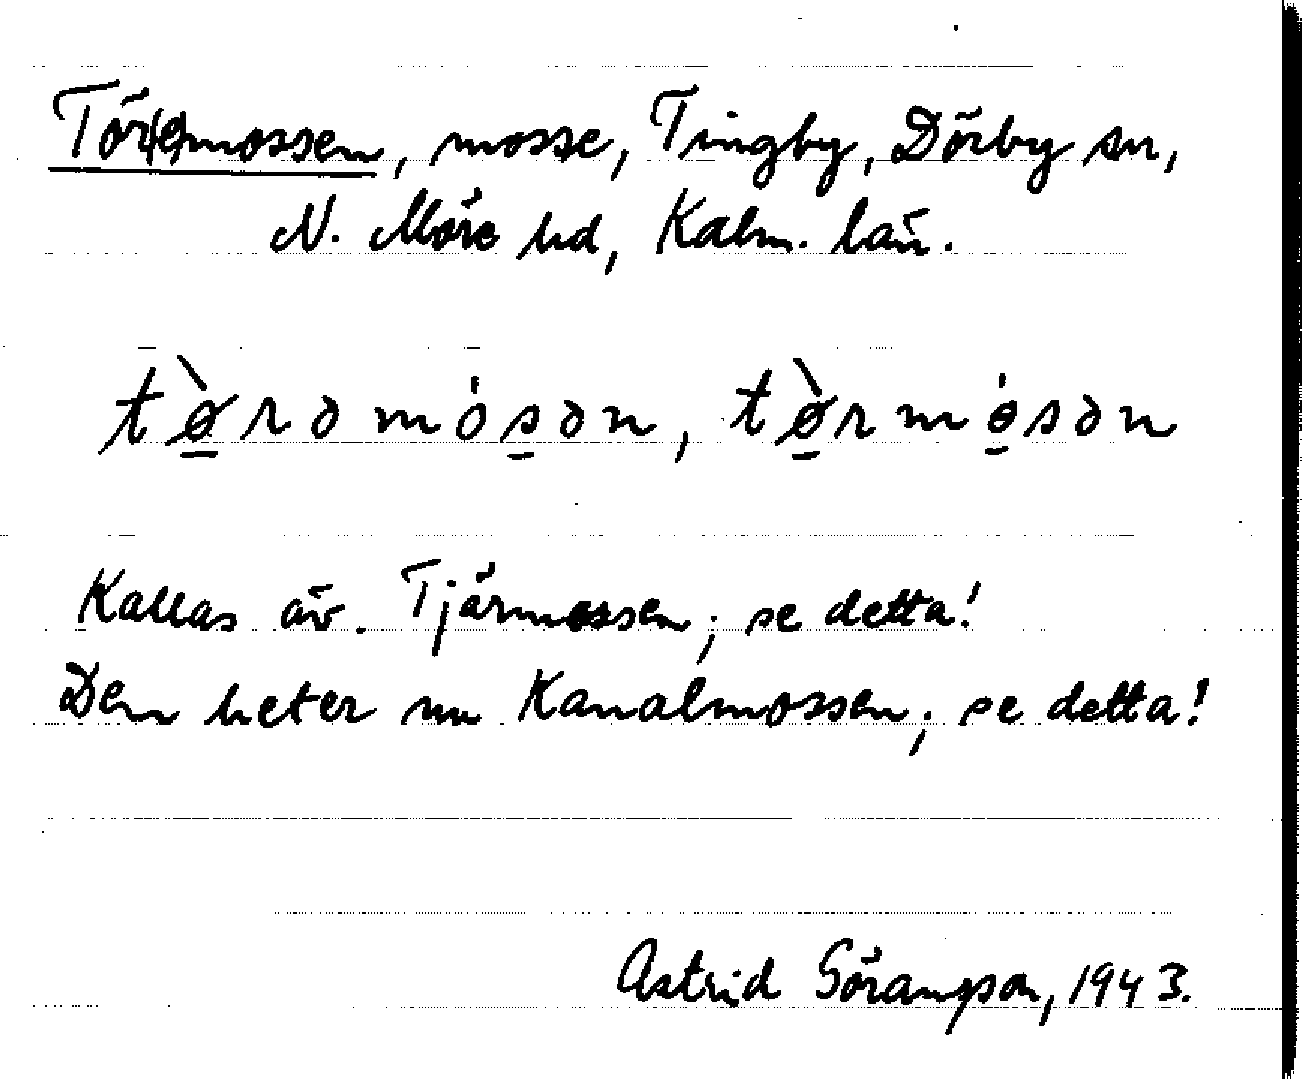 Tör(e)mossen, mosse, Tingby, Dörby sn,
N. Möre hd, Kalm. län.
tø̀rəmósən, tø̀rmósən
Kallas äv. Tjärmossen; se detta!
Den heter nu Kanalmossen; se detta!
Astrid Göransson, 1943.